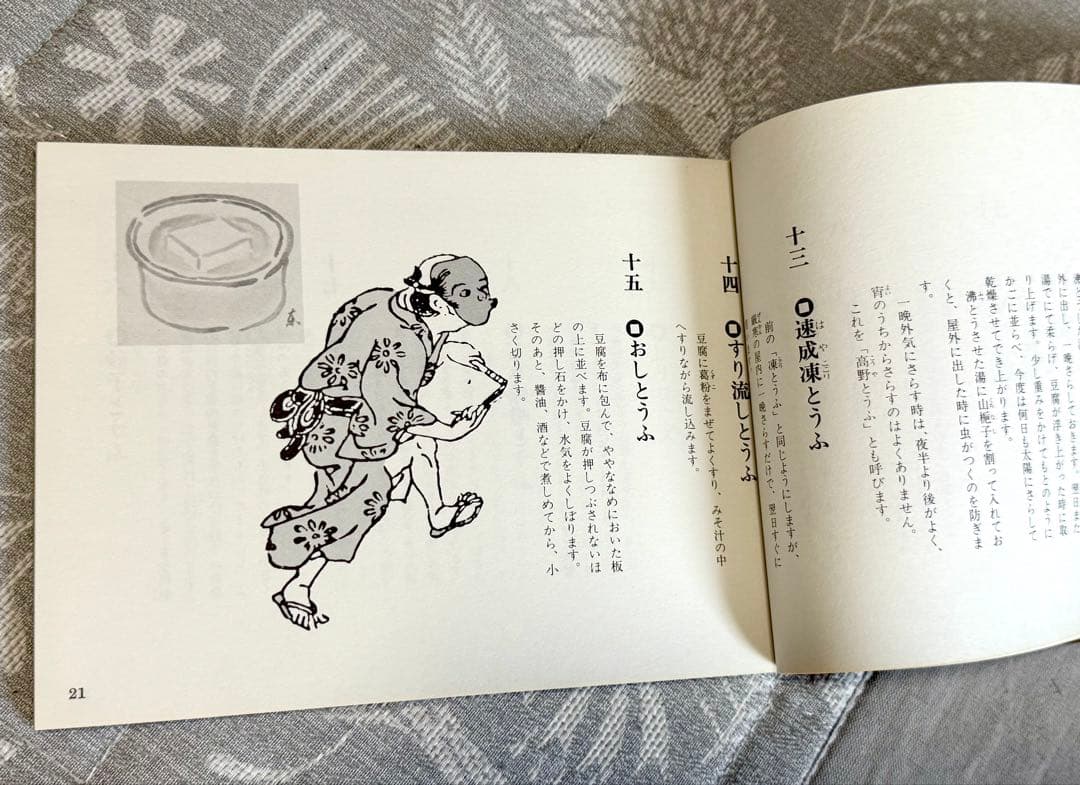 沸とうさせた湯に山梔子を割って入れてお
くと、屋外に出した時に虫がつくのを防ぎま
す。
一晩外気にさらす時は、夜半より後がよく、
宵のうちからさらすのはよくありません。
これを「高野とうふ」とも呼びます。
外に出し、一晩さらしておきます。翌日また
湯でにて柔らげ、豆腐が浮き上がった時に取
り上げます。少し重みをかけてもとのように
かごに並らべ、今度は何日も太陽にさらして
乾燥させてでき上がります。
十三
速成凍とうふ
はやこおり
前の「凍とうふ」と同じようにしますが、
厳寒の屋内に一晩さらすだけで、翌日すぐに
十四
すり流しとうふ
豆腐に葛粉をまぜてよくすり、みそ汁の中
へすりながら流し込みます。
十五
おしとうふ
豆腐を布に包んで、ややななめにおいた板
の上に並べます。豆腐が押しつぶされないほ
どの押し石をかけ、水気をよくしぼります。
そのあと、醬油、酒などで煮しめてから、小
さく切ります。
21